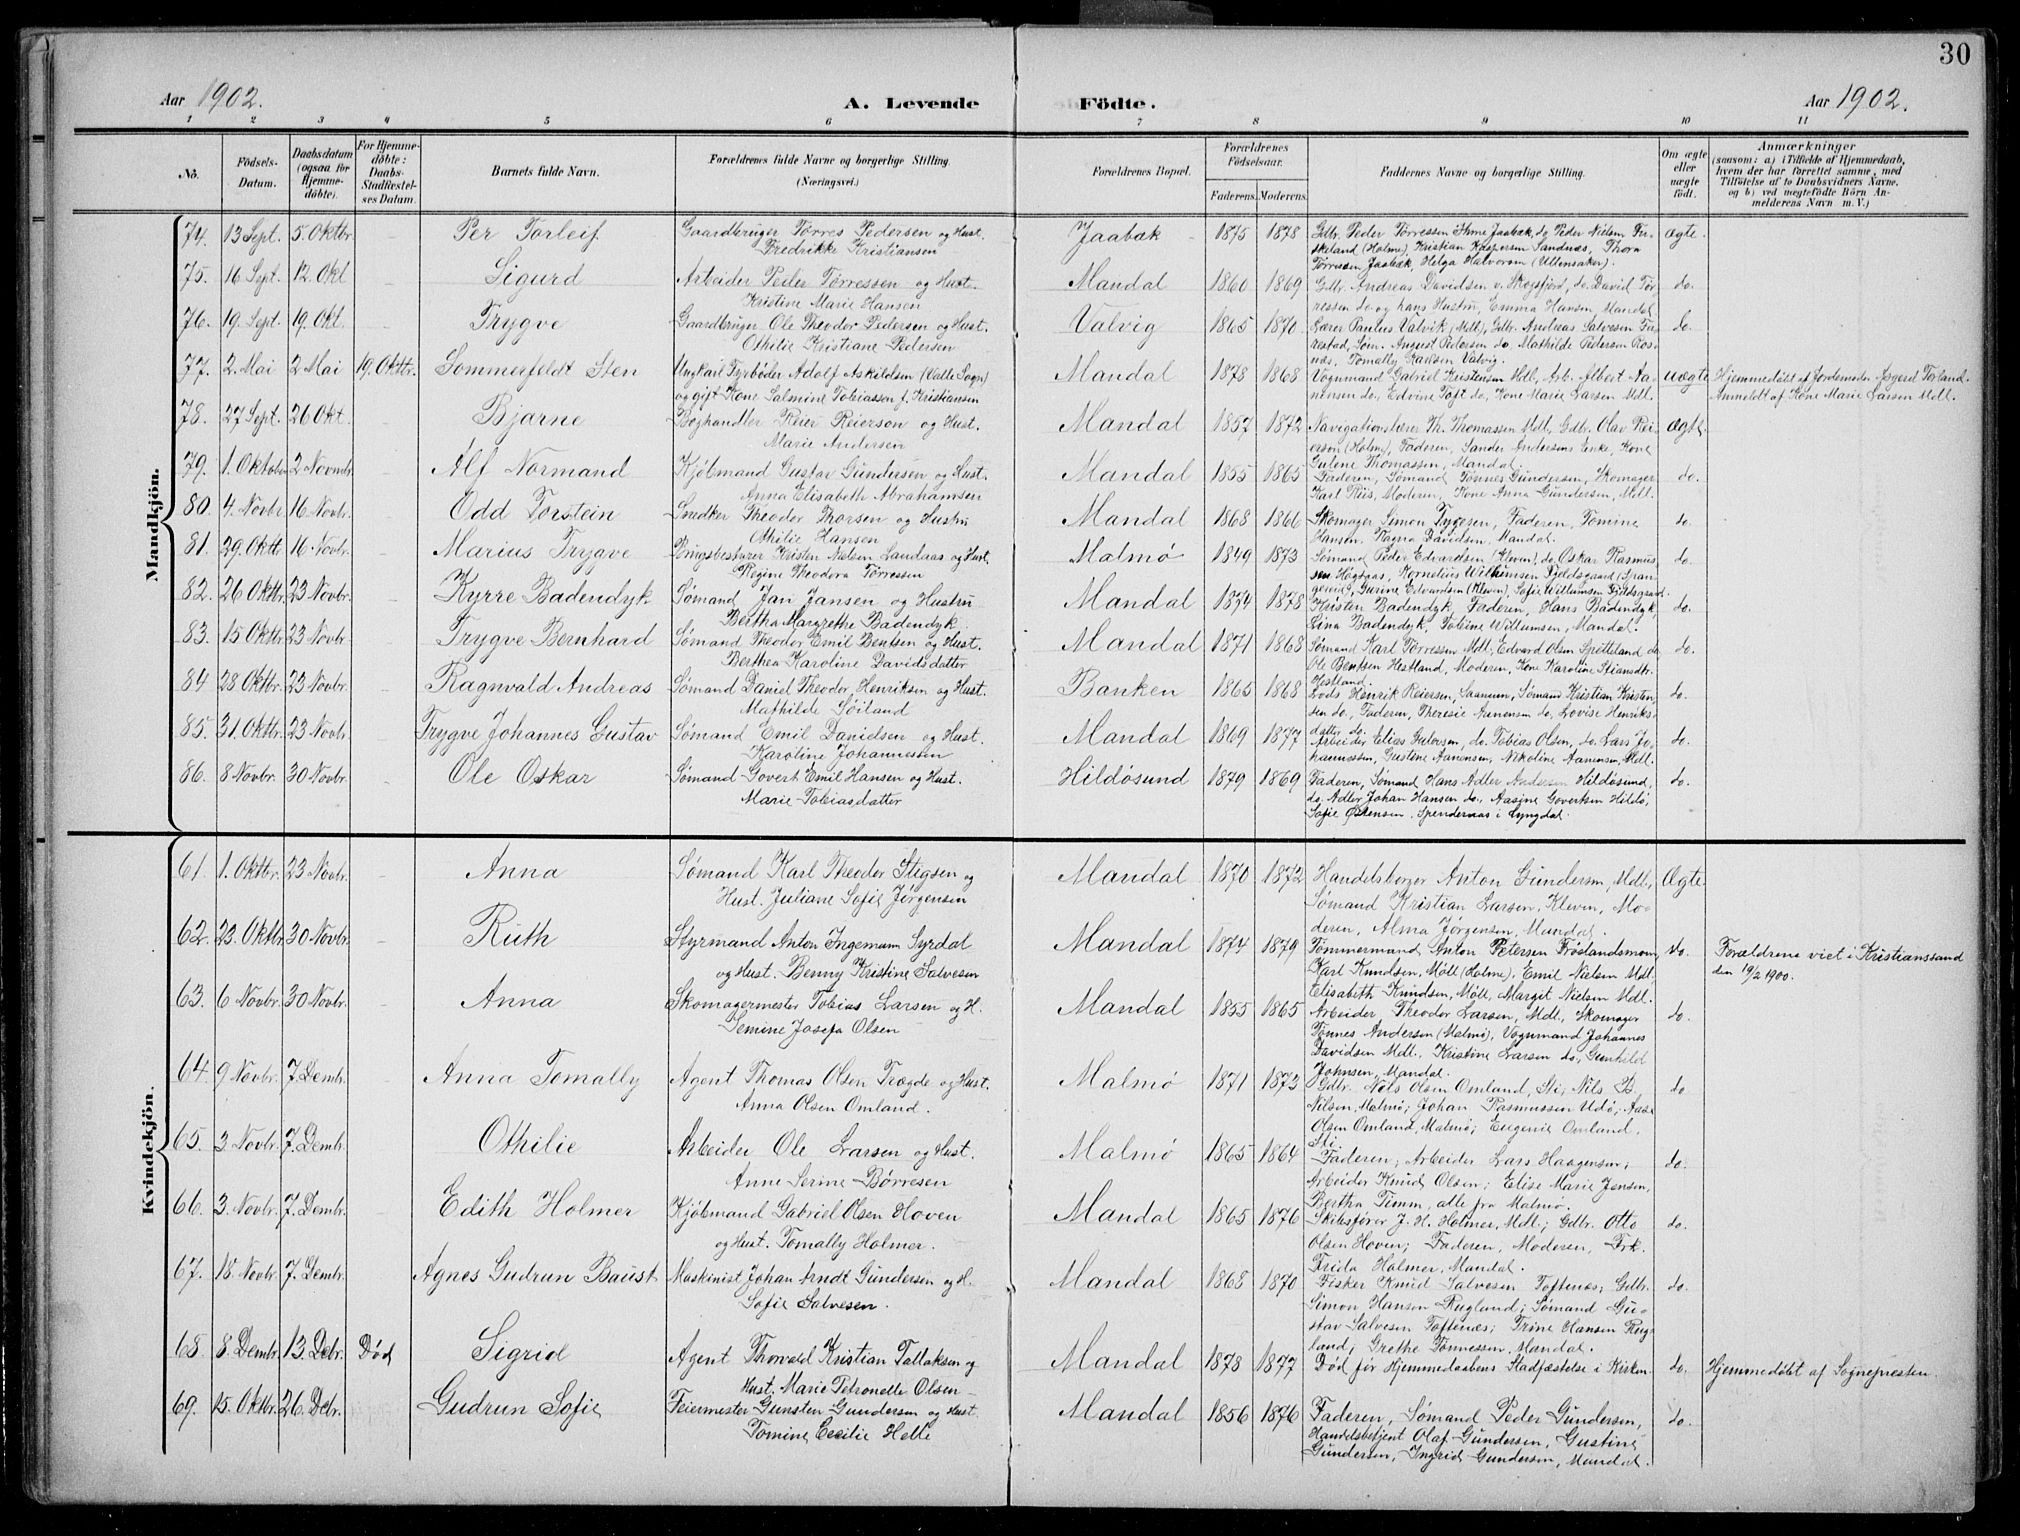 30
Aar 1902.
A. Levende Födte.
Aar 1902.
1 2 3 4 5 6 7 8 9 10 11
No. Födsels-Datum. Daabsdatum (ogsaa for Hjemmedöbte). For Hjemmedöbte: Daabs-Stadfæstelses Datum. Barnets fulde Navn. Forældrenes fulde Navne og borgerlige Stilling. (Næringsvei.) Forældrenes Bopæl. Forældrenes Födselsaar. Faderens. Moderens. Faddernes Navne og borgerlige Stilling. Om ægte eller uægte födt. Anmærkninger (saasom: a) i Tilfælde af Hjemmedaab, hvem der har forrettet samme, med Tilföielse af to Daabsvidners Navne, og b) ved uegtefödte Börn Anmelderens Navn m. V.)
Mandkjön.
74. 13 Sept. 5. Oktbr. Per Torleif Gaardbruger Tørres Pedersen og Hust. Fredrikke Kristiansen Jaabæk 1875 1878 Gbr. Peder Tørressen Jaabæk, do Peder Nielsen Fuskeland (Holme), Kristian Kaspersen Sandnæs, Thora Tørressen Jaabæk, Helga Halvorsen (Ullensaker). ægte.
75. 16 Sept. 12. Okt Sigurd Arbeider Peder Tørressen og Hust. Kristine Marie Hansen Mandal 1860 1869 Gbr. Andreas Davidsen v. Skogsfjord, do. David Tørressen do og hans Hustru, Emma Hansen, Mandal do.
76. 19. Sept. 19. Okt. Trygve Gaardbruger Ole Theodor Pedersen og Hust. Othilie Kristiane Pedersen Valvig 1865 1870 Lærer Paulus Valvik (Mdl), Gbr. Andreas Salvesen, Søm. August Pedersen do. Mathilde Pedersen Rosnæs, Tomally Karlsen Valvig. do.
77. 2. Mai 2 Mai 19. Oktbr. Sommerfeldt Sten Ungkarl Fyrbøder Adolf Askildsen (Valle Sogn) og gift Kone Salmine Tobiassen f. Kristiansen Mandal 1878 1868 Vognmand Gabriel Kristensen Mdl, Arb. Albert Aanensen do, Edvine Toft do, Kone Marie Larsen Mdl. uægte Hjemmedøbt af Jordemoder Asgerd Torland. Anmeldt af Kone Marie Larsen Mdl.
78. 27 Sept. 26 Okt. Bjarne Boghandler Reier Reierson og Hust. Marie Andersen Mandal 1857 1872 Navigationslærer Th. Thomassen Mdl, Gbr. Olav Reiersen (Holme), Faderen, Sander Andersens Enke, Kone Gulene Thomassen, Mandal. Ægte.
79. 1. Oktober 2 Novmbr. Alf Normand Kjøbmand Gustav Gundersen og Hust. Anna Elisabeth Abrahamsen Mandal 1855 1865 Faderen, Sømand Tønnes Gundersen, Skomager Karl Riis, Moderen, Kone Anna Gundersen, Mdl. do.
80. 4. Novbr. 16 Novbr. Odd Torstein Snedker Theodor Thorsen og Hustru Othilie Hansen Mandal 1868 1866 Skomager Simon Tygesen, Faderen, Tomine Hansen, Ragna Davidsen, Mandal. do.
81. 29 Oktbr 16. Novbr. Marius Trygve Brugsbestyrer Kristen Nielsen Landaas og Hust. Regine Theodora Tørressen Malmø 1849 1873 Sømand Peder Edvardsen (Kleven), do. Oskar Rasmussen Høgsaas, Kornelius Willumsen Fjeldsgaard (Sfrangereid), Gurine Edvardsen (Kleven), Sofie Willumsen Fjeldsgaard do.
82. 26 Oktbr. 23 Novbr. Kyrre Badendyk Sømand Jan Jansen og Hustru Bertha Margrethe Badendyk. Mandal 1874 1878 Kristen Badendyk, Faderen, Hans Badendyk, Lina Badendyk, Tobine Willumsen, Mandal. do.
83. 15 Oktbr. 23 Novbr. Trygve Bernhard Sømand Theodor Emil Bentsen og Hust. Berthea Karoline Davidsdatter Mandal 1871 1868 Sømand Karl Tørressen Mdl, Edvard Olsen Spetteland do, Ole Bentsen Hestland, Moderen, Kone Karoline Stiansdtr. Hestland. do.
84 28 Oktbr. 23 Novbr. Ragnvald Andreas Sømand Daniel Theodor Henriksen og Hust. Mathilde Søiland Banken 1865 1868 Lods Henrik Reiersen, Saanum, Sømand Kristian Kristensen do., Faderen, Theresie Aanensen do, Lovise Henriksdatter do. do.
85. 31. Oktbr. 23 Novbr Trygve Johannes Gustav Sømand Emil Danielsen og Hust. Karoline Johannessen Mandal 1869 1877 Arbeider Elias Pedersen, do. Tobias Olsen, do. Lars Johannessen, Gustene Aanensen, Nikoline Aanensen, Mdl. do.
86. 8 Novbr. 30 Novbr. Ole Oskar Sømand Govert Emil Hansen og Hust. Marie Tobiasdatter Hildøsund 1879 1869 Faderen, Sømand Hans Adler Andersen Hildøsund, do. Adler Johan Hansen do., Aasine Govertsen Hildø, Sofie Østensen, Spendernæs i Lyngdal. do.
Kvindekjön.
61. 1. Oktbr. 23 Novbr. Anna Sømand Karl Theodor Stigsen og Hust. Juliane Sofie Jørgensen Mandal 1870 1872 Handelsborger Anton Gundersen, Mdl., Sømand Kristian Larsen, Kleven, Moderen, Alma Jørgensen, Mandal. Ægte.
62. 23. Oktbr. 30 Novbr. Ruth Styrmand Anton Ingemann Syrdal og Hust. Benny Kristine Salvesen Mandal 1874 1879 Tømmermand Anton Petersen Frøslandsmoen, Karl Knudsen, Møll (Holme), Emil Nielsen Mdl, Elisabeth Knudsen, Møll, Margit Nielsen Mdl. do. Forældrene viet i Kristianssand den 19/2 1900.
63. 6 Novbr. 30 Novbr. Anna Skomagermester Tobias Larsen og H. Semine Josefa Olsen Mandal 1855 1865 Arbeider Theodor Larsen, Mdl., Skomager Tønnes Andersen (Malmø), Vognmand Johannes Davidsen Mdl., Kristine Larsen do, Gunhild Johnsen, Mandal. do.
64. 9 Novbr. 7. Dembr. Anna Tomally Agent Thomas Olsen Trægde og Hust. Anna Olsen Omland. Malmø 1871 1873 Gdbr. Nils Olsen Omland, Sti; Nils B. Nilsen, Malmø; Johan Rasmussen Udø; Aase Olsen Omland, Malmø; Eugenie Omland. Sti. do
65. 3 Novbr. 7. Dembr. Othilie Arbeider Ole Larsen og Hust. Anne Serine Børresen Malmø 1865 1864 Faderen; Arbeider Lars Haagensen; Arbeider Knud Olsen; Elise Marie Jensen, Bertha Timm, alle fra Malmø. do.
66. 3. Novbr. 7. Dembr. Edith Holmer Kjøbmand Gabriel Olsen Hoven og Hust. Tomally Holmer. Mandal 1865 1876 Skibsfører J. H. Holmer, Mdl.; Gdbr. Otto Olsen Hoven; Faderen, Moderen, Frk. Frida Holmer, Mandal. do.
67. 18. Novbr. 7. Dembr. Agnes Gudrun Baust Maskinist Johan Arndt Gundersen og H. Sofie Salvesen. Mandal 1868 1870 Fisker Knud Salvesen Toftenæs; Gdbr. Simon Hansen Rugland; Sømand Gustav Salvesen Toftenæs; Trine Hansen Rugland; Grethe Tønnessen, Mandal. do.
68. 8. Dembr. 13. Debr. Død Sigrid Agent Thorvald Kristian Tallaksen og Hust. Marie Petronelle Olsen Mandal 1878 1877 Død før Hjemmedaabens Stadfæstelse i Kirken. do. Hjemmedøbt af Sognepresten.
69. 15. Oktbr. 26. Debr. Gudrun Sofie Feiermester Gunsten Gundersen og Hust. Tomine Cecilie Helle Mandal 1856 1876 Faderen, Sømand Peder Gundersen, Handelsbetjent Olaf Gundersen, Gustine Gundersen, Ingrid Gundersen, Mandal. do.